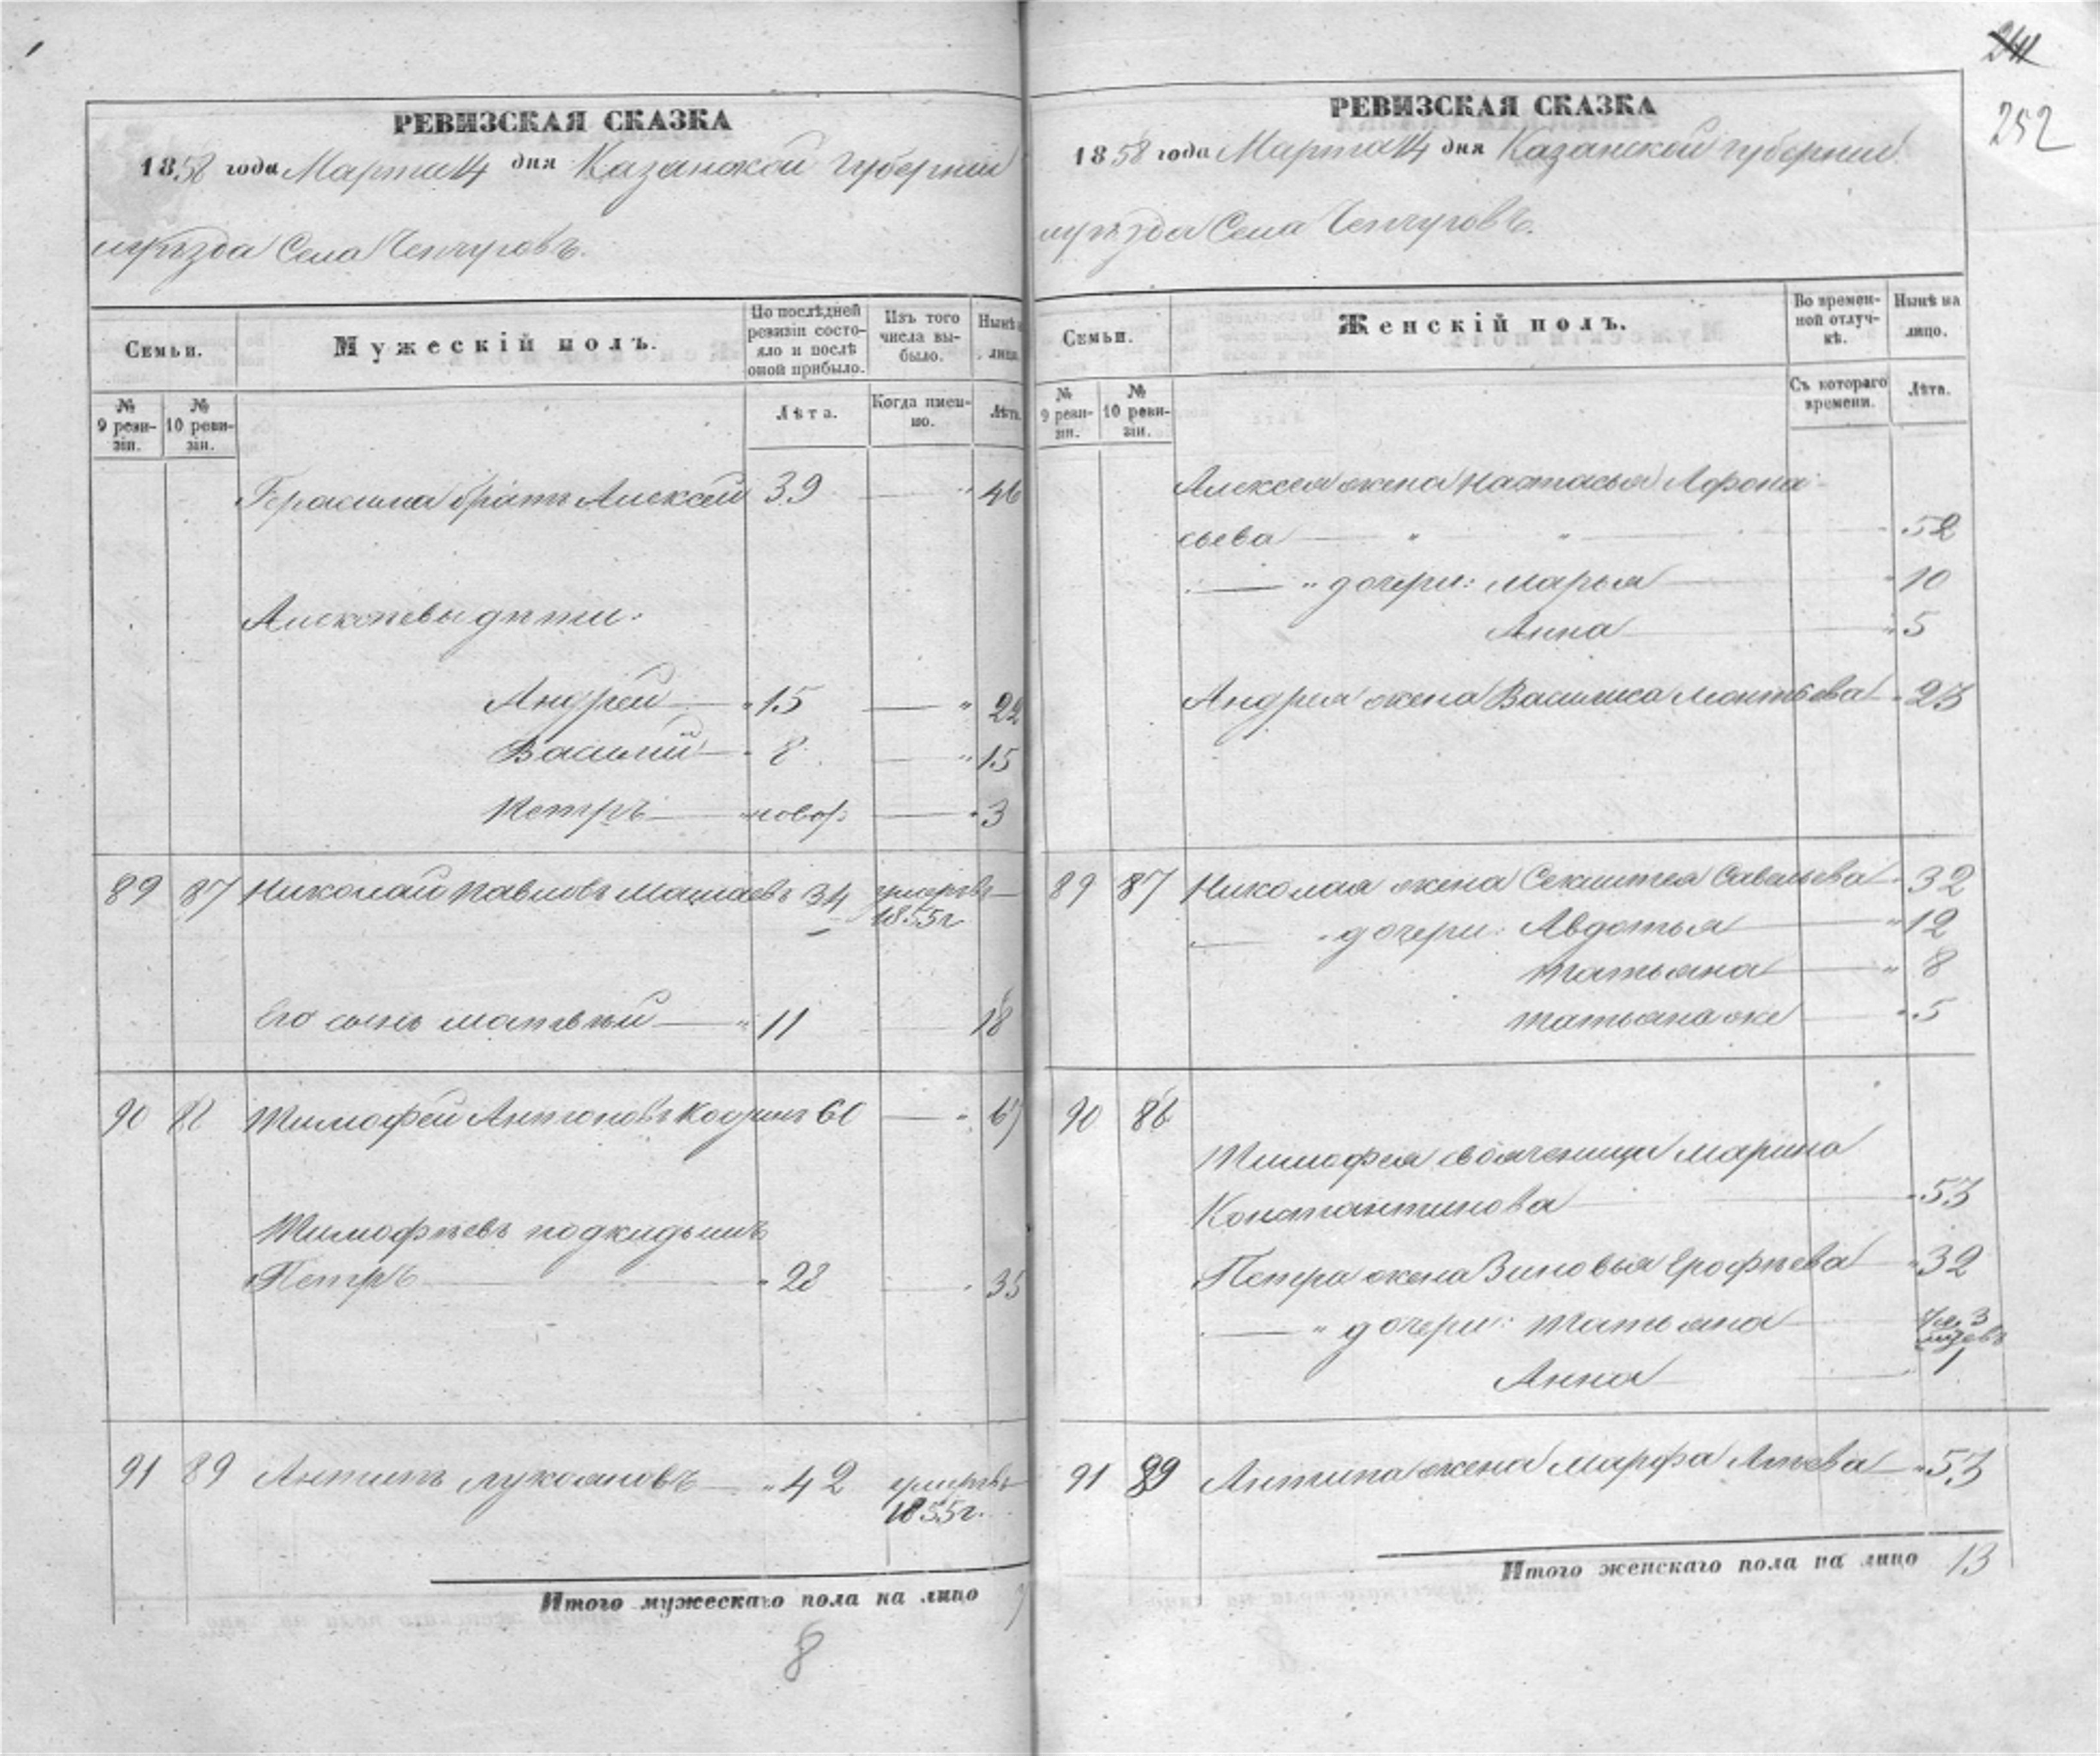 241
252
РЕВИЗСКАЯ СКАЗКА
1858 года Марта 14 дня Казанской Губернии
и уѣзда Села Чепчуговъ.
Семьи.
Мужескій полъ.
По послѣдней ревизіи состояло и послѣ оной прибыло.
Изъ того числа выбыло.
Нынѣ лицо
№ 9 ревизіи.
№ 10 ревизіи.
Лѣта.
Когда именно.
Лѣта
Герасима братъ Алексей 39 — " 46
Алексѣевы дѣти:
Андрей — " 15 — " 22
Василий — " 8 — " 15
Петръ — новор — " 3
89 87 Николай Павловъ Машаевъ 34 умеръ въ 1855 г
Его сынъ Матвѣй — " 11 18
90 88 Тимофей Антоновъ 60 — " 67
Тимофѣевъ подкидышъ
Петръ — " 28 — " 35
91 89 Антипъ Лукояновъ — " 42 умеръ въ 1855 г.
Итого мужескаго пола на лицо 7
8
РЕВИЗСКАЯ СКАЗКА
1858 года Марта 14 дня Казанской губернии
и уѣзда Села Чепчуговъ.
Семьи.
Женскій полъ.
Во временной отлучкѣ.
Нынѣ на лицо.
№ 9 ревизіи.
№ 10 ревизіи.
Съ котораго времени.
Лѣта.
Алексея жена Настасья Афона-
сьева — " " — " 52
— " дочери: Марья — " 10
Анна — " 5
Андрея жена Василиса Леонтьева — " 23
89 87 Николая жена Савельева — " 32
— " дочери: Авдотья — " 12
Татьяна — " 8
Татьяна же — " 5
90 88
Тимофея своячница Марина
Константинова — " 53
Петра жена Зиновья Ерофѣева — " 32
— " дочери: Татьяна — 3
Анна — 1
91 89 Антипа жена Марфа — " 53
Итого женскаго пола на лицо 13